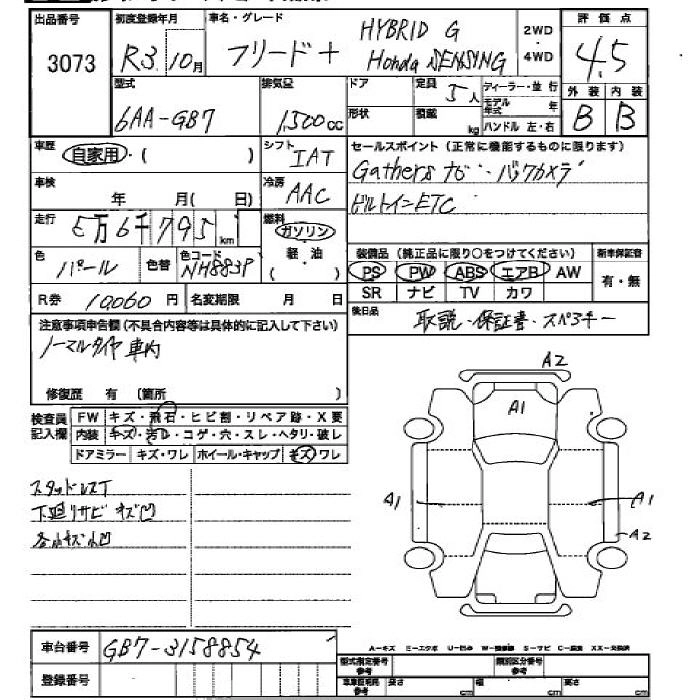 出品番号 初度登録年月 車名・グレード 2WD・4WD 評価点
3073 R3 10月 フリード+ HYBRID G Honda SENSING 4.5
型式 排気量 ドア 定員 ディーラー・並行 外装 内装
6AA-GB7 1500cc 形状 5人 積載 kg モデル年式 年 ハンドル 左・右 B B
車歴 自家用・( ) シフト IAT セールスポイント(正常に機能するものに限ります)
車検 年 月( 日) 冷房 AAC Gathersナビ・バックカメラ
走行 6千795km 燃料 ガソリン 軽・油 ( ) ビルトインETC
色 パール 色替 色コード NH883P 装備品(純正品に限り○をつけてください) 新車保証書
PS PW ABS エアB AW 有・無
R券 10060円 名変期限 月 日 SR ナビ TV カワ
注意事項申告欄(不具合内容等は具体的に記入して下さい) 後日品 取説・保証書・スペアキー
ノーマルタイヤ車内
修復歴 有 〔箇所 〕
検査員記入欄 FW キズ・飛石・ヒビ割・リペア跡・X要
内装 キズ・汚れ・コゲ・穴・スレ・ヘタリ・破レ
ドアミラー キズ・ワレ ホイール・キャップ キズ ワレ
A2
A1
A1 A1
A2
スタッドレスT
下廻りサビ キズ凹
各小キズ小凹
車台番号 GB7-3158854
A-キズ ミ-エクボ U-凹み W-補修跡 S-サビ C-腐食 XX-交換済
登録番号 型式指定番号 参考 類別区分番号 参考
車車証明用 参考 長さ cm 幅 cm 高さ cm